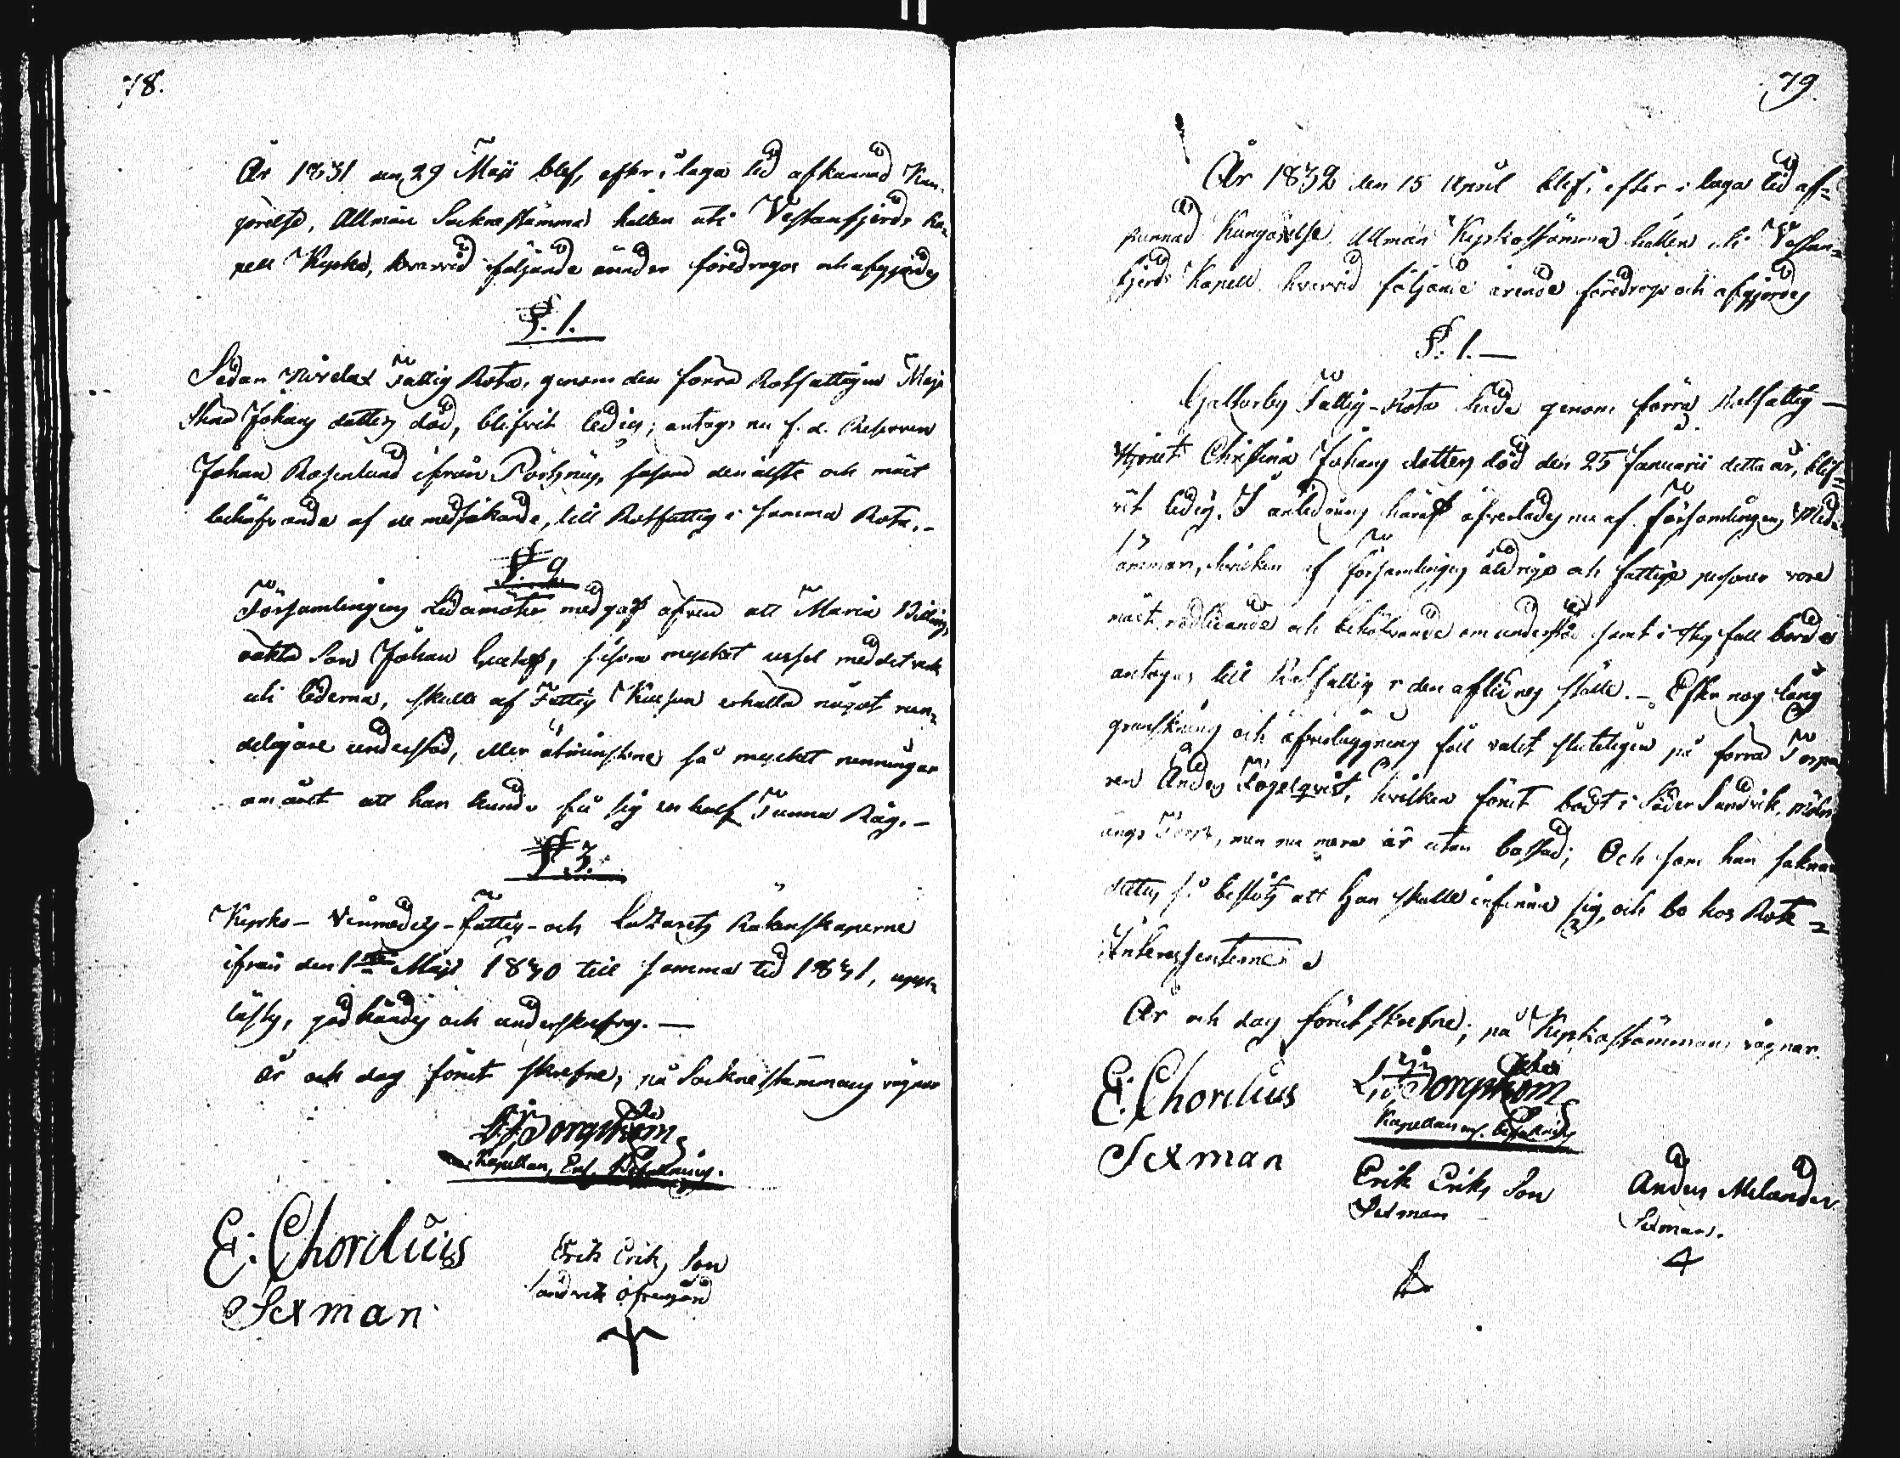 78.
År 1831 den 29 Maji blef, efter i laga tid afkunnad Kun-
görelse, Allmän Socknestämma hållen uti Vestanfjerds Ka-
pell Kyrka, hvarvid följande ärender föredrogos och afgjordes
§. 1.
Sedan Nivelax Fattig Rota, genom den förra Rotfattigen Maja
Stina Johans dotters död, blifvit ledig; antogs nu f. d. Reserven
Johan Rosenlund ifrån såsom den älste och mäst
behöfvande af de medsökande, till Rotfattig i samma Rota. -
§. 2.
Församlingens Ledamöter medgaf äfven att Maria
oäkta Son Johan Gustaf, såsom mycket ussel med det
uti lederna, skulle af Fattig Kassan erhålla något run-
deligare understöd, eller åtminstone så mycket penningar
om året att han kunde få sig en half Tunna Råg. -
§ 3.
Kyrko- Vinmedels- Fattig- och Lazarets Räkenskaperne
ifrån den 1ste Maji 1830 till samma tid 1831, upp-
lästes, godkändes och underskrefvos. -
År och dag förut skrefne, på Sockne stämmans vägnar
Borgström
Kapellan, Enl. Befallning.
E: Chorelius
Sexman
Erik Eriks Son
Sandvik öfvergård
79.
År 1832 den 15 April blef, efter i laga tid af-
kunnad Kungörelse Allmän Kyrkostämma hållen uti Vestan-
fjerds Kapell hvarvid följande ärende föredrogs och afgjordes
§. 1. -
Galtarby Fattig-Rota hade genom förra Rotfattig -
Hjonet Christina Johans dotters död den 25 Januarii detta år, blif-
vit ledig. I anledning häraf öfverlades nu af Församlingens Med-
lämmar, hvilken af församlingens åldrige och fattige personer vore
mäst nödlidande och behöfvande om understöd samt i thy fall borde
antagas till Rotfattig i den aflidnes ställe. - Efter nog lång
granskning och öfverläggning föll valet sluteligen på förra Torpa-
ren Anders Fogelqvist, hvilken förut bodt i Söder Sandvik,
ängs Torp, men nu mera är utan bostad; Och som han saknar
så beslöts att Han skulle infinna sig och bo hos Rote-
Interessenterne.
År och dag förut skrefne; på Kyrkostämmans vägnar.
E: Chorelius
Sexman
Borgström
Kapellan enl. befallning
Erik Eriks Son
Sexman
Anders Melander
Sexman.